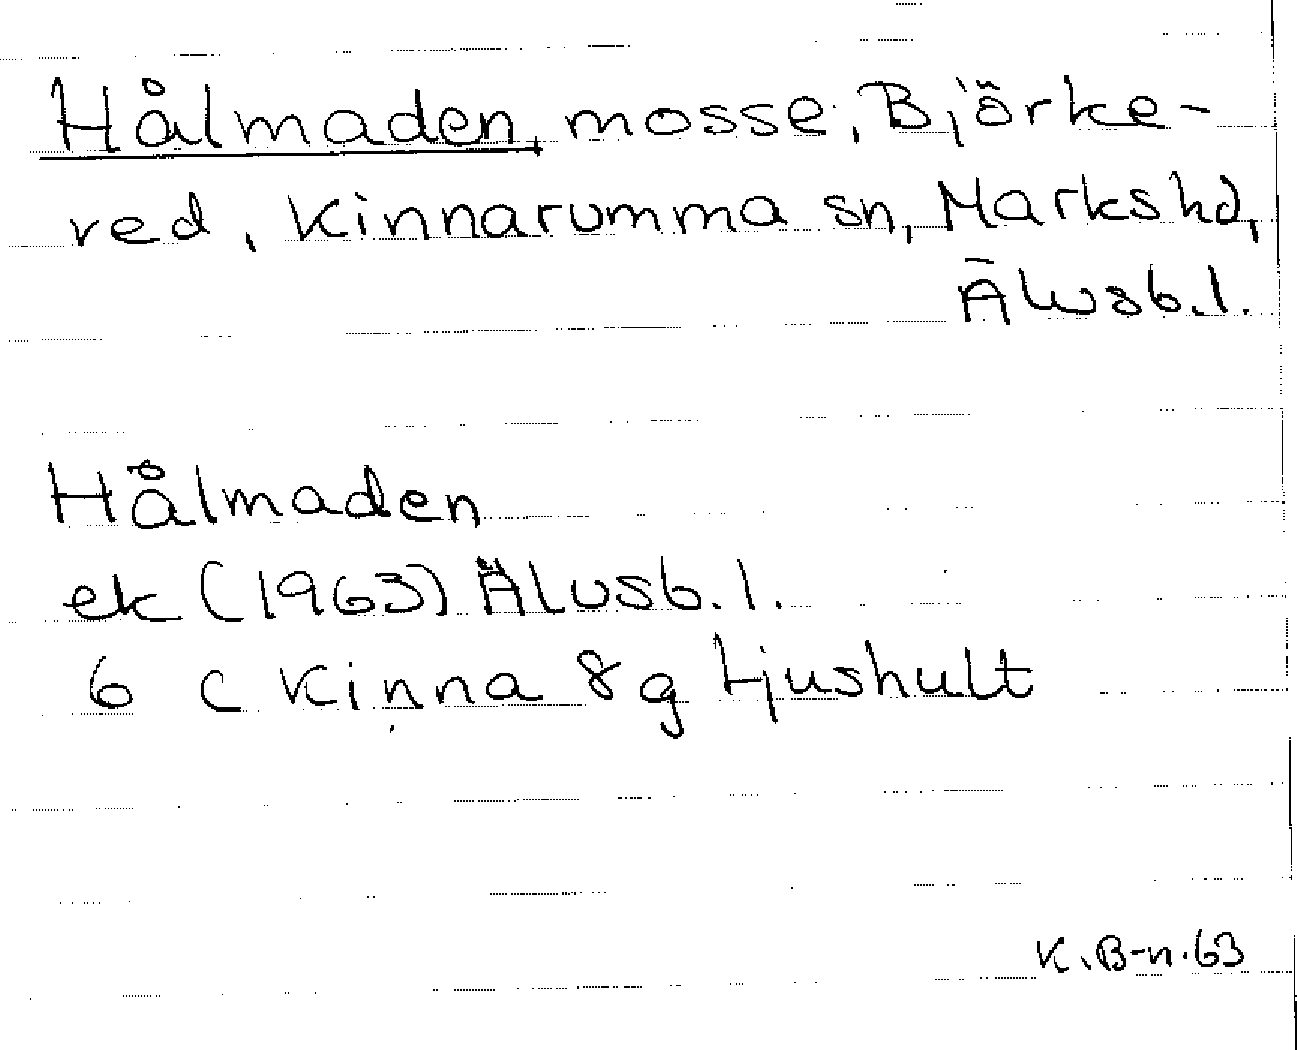 Hålmaden, mosse, Björke-
red, Kinnarumma sn, Marks hd,
Älvsb.l.
Hålmaden
ek (1963) Älvsb.l.
6 C Kinna 8g Ljushult
K.B-n.63